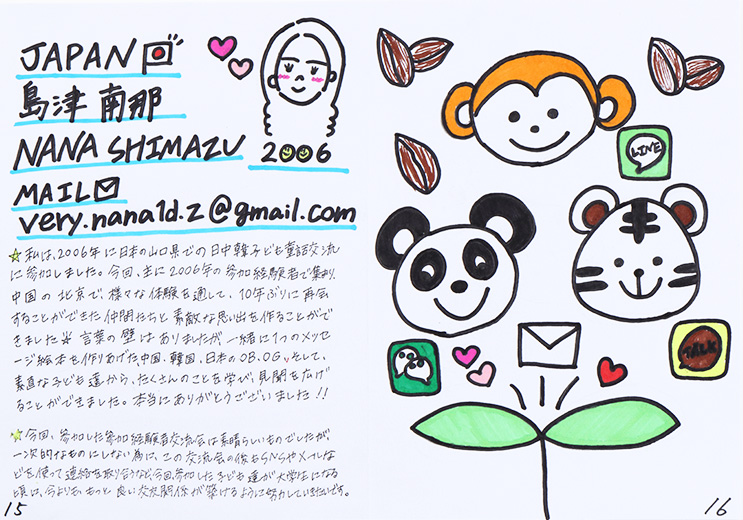 JAPAN
島津 南那
NANA SHIMAZU
MAIL
very.nana1d.z@gmail.com
2006
☆私は、2006年に日本の山口県での日中韓子ども童話交流
に参加しました。今回、主に2006年の参加経験者で集まり、
中国の北京で、様々な体験を通して、10年ぶりに再会
することができた仲間たちと素敵な思い出を作ることがで
きました☆ 言葉の壁はありましたが、一緒に1つのメッセ
ージ絵本を作りあげた中国、韓国、日本のOB.OG、そして、
素直な子ども達から、たくさんのことを学び、見聞を広げ
ることができました。本当にありがとうございました!!
☆今回、参加した参加経験者交流会は素晴らしいものでしたが、
一次的なものにしない為に、この交流会の後もSNSやメールな
どを使って連絡を取り合うなど、今回参加した子ども達が大学生になる
頃には、今よりももっと良い交友関係が築けるように努力していきたいです。
15
LINE
TALK
16